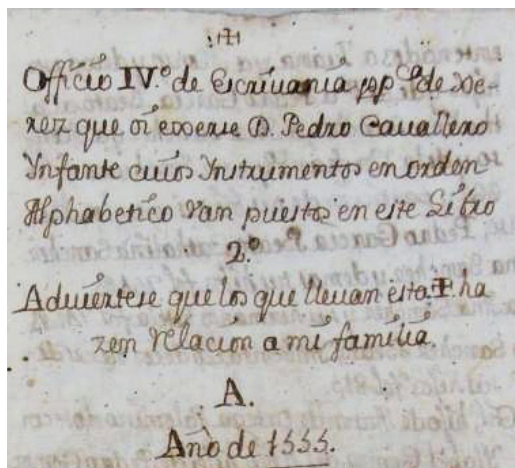 Officio IV.º de Escrivania pp.ca de Xe-
rez que oi exerse D. Pedro Cavallero
Infante cuios Instrumentos en orden
Alphabetico van puestos en este Libro
2.º
Adviertese que los que llevan esta ✝ ha
zen relacion a mi familia.
A.
Año de 1555.